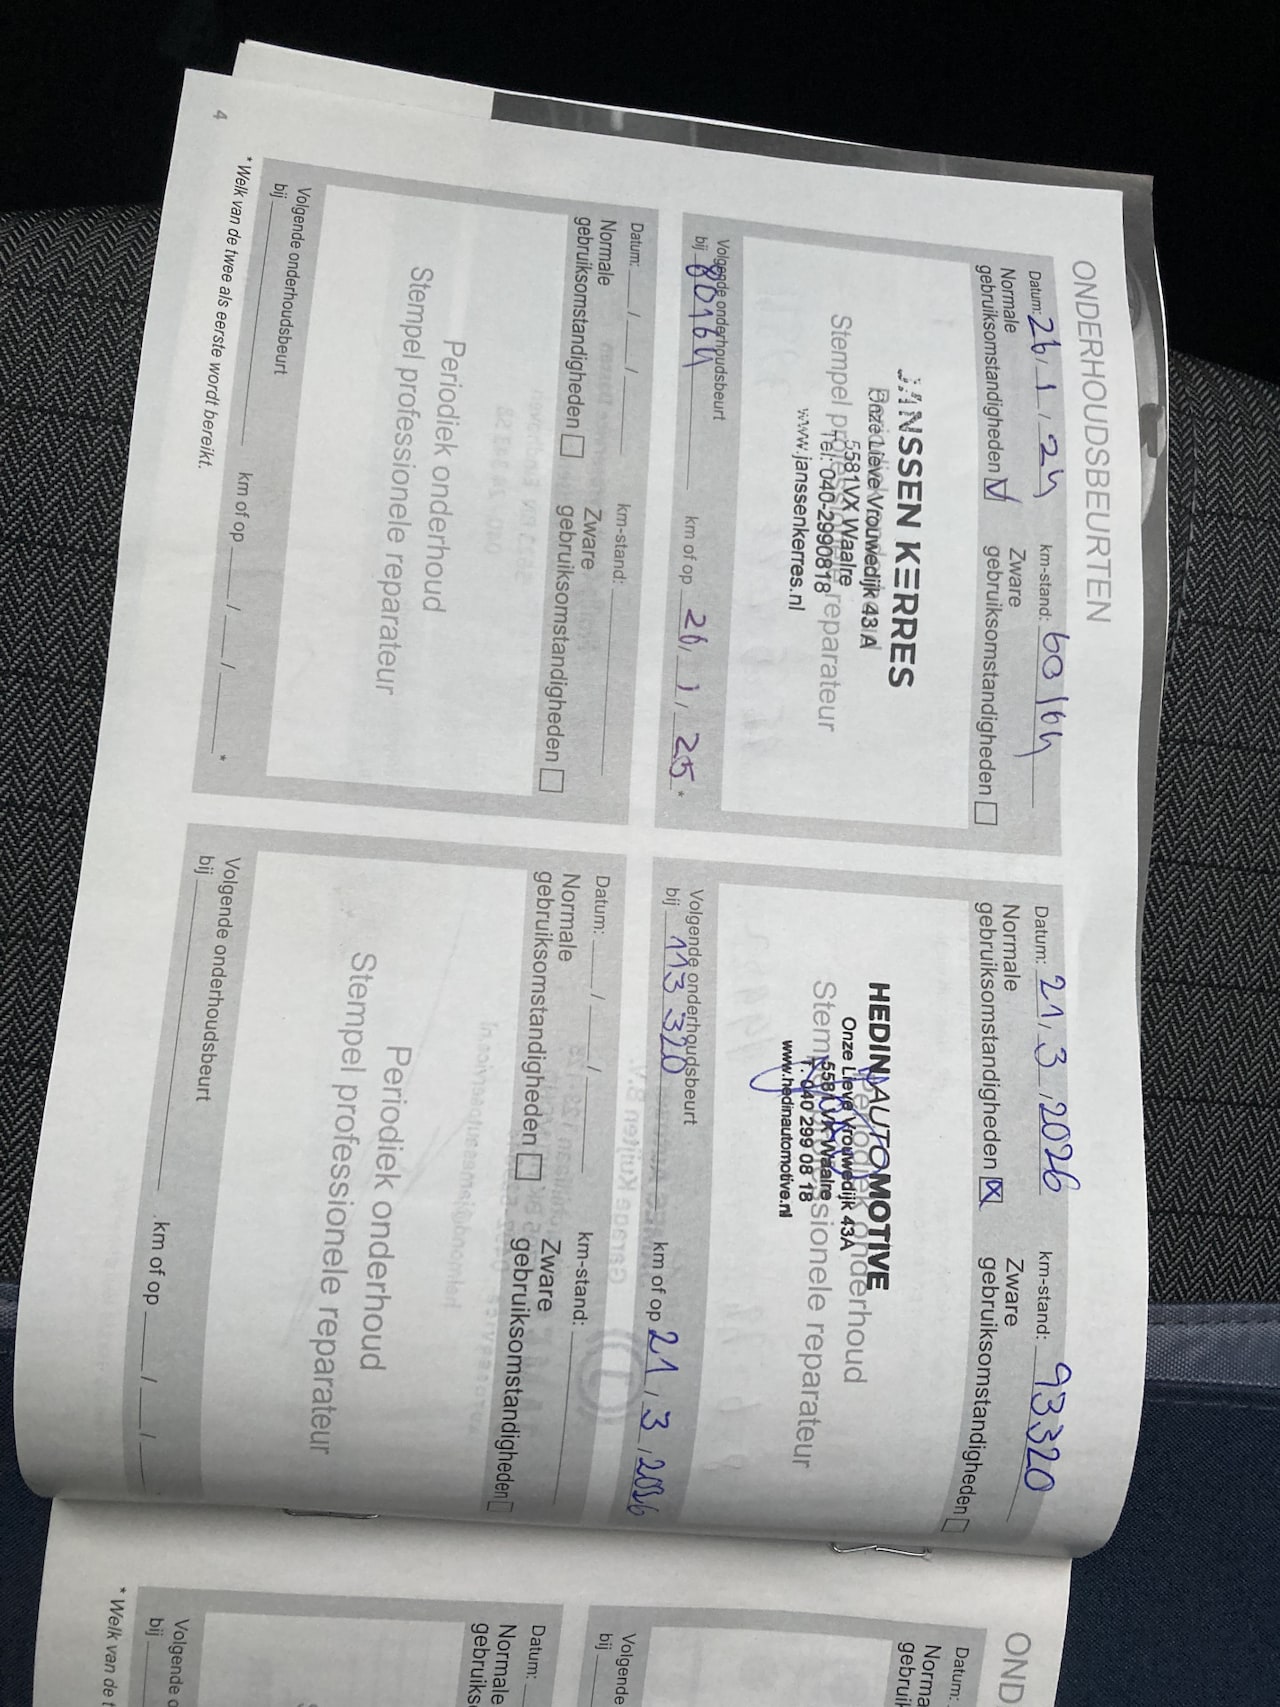 ONDERHOUDSBEURTEN
Datum: 26 / 1 / 24 km-stand: 60164
Normale gebruiksomstandigheden Zware gebruiksomstandigheden
JANSSEN KERRES
Onze Lieve Vrouwedijk 43A
5581VX Waalre
Tel: 040-2990818
www.janssenkerres.nl
Stempel professionele reparateur
Volgende onderhoudsbeurt
bij 80164 km of op 26 / 1 / 25 *
Datum: 21 / 3 / 2026 km-stand: 93320
Normale gebruiksomstandigheden Zware gebruiksomstandigheden
HEDIN AUTOMOTIVE
Periodiek onderhoud
Onze Lieve Vrouwedijk 43A
5581 VK Waalre
T. 040 299 08 18
www.hedinautomotive.nl
Stempel professionele reparateur
Volgende onderhoudsbeurt
bij 113 320 km of op 21 / 3 / 2026
Datum: / / km-stand:
Normale gebruiksomstandigheden Zware gebruiksomstandigheden
Periodiek onderhoud
Stempel professionele reparateur
Volgende onderhoudsbeurt
bij km of op / / *
Datum: / / km-stand:
Normale gebruiksomstandigheden Zware gebruiksomstandigheden
Periodiek onderhoud
Stempel professionele reparateur
Volgende onderhoudsbeurt
bij km of op / /
* Welk van de twee als eerste wordt bereikt.
4
OND
Datum:
Norma
gebruik
Volgende
bij
Datum:
Normale
gebruiks
Volgende o
bij
* Welk van de t